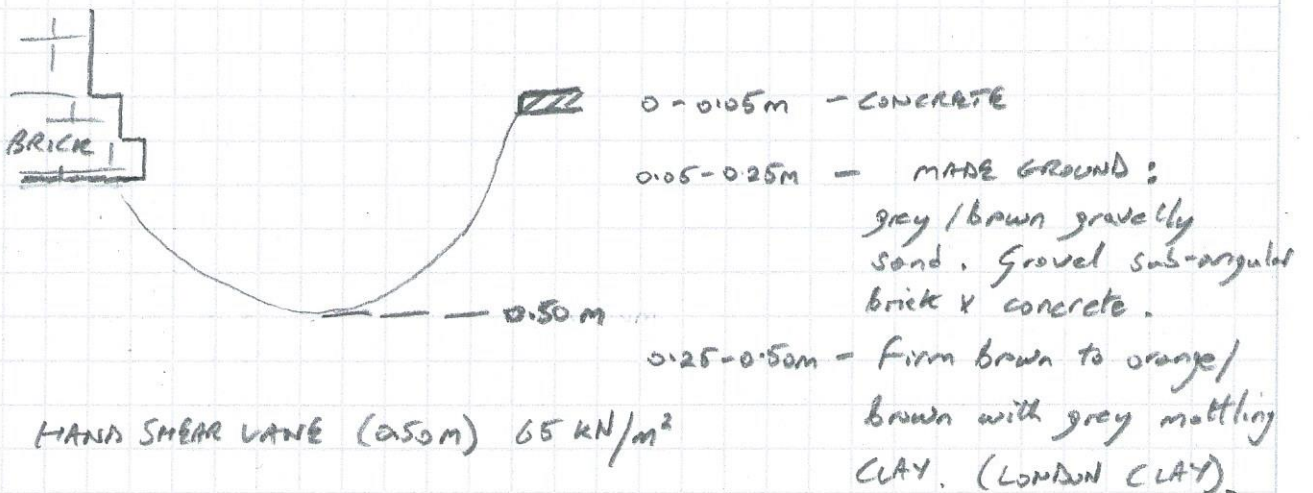 0 - 0.05m - CONCRETE
BRICK
0.05 - 0.25m - MADE GROUND :
grey / brown gravelly
sand. Gravel sub-angular
brick & concrete.
0.50 m
0.25 - 0.50m - Firm brown to orange/
brown with grey mottling
CLAY. (LONDON CLAY).
HAND SHEAR VANE (0.50m) 65 kN/m²